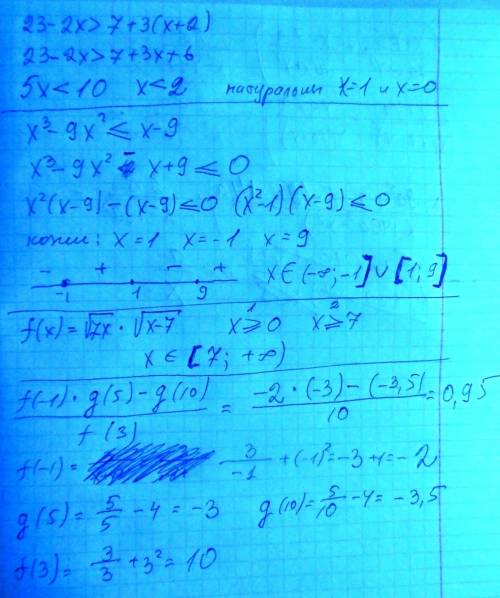 23-2x>7+3(x+2)
23-2x>7+3x+6
5x<10 x<2 натуральных x=1 и x=0
x³-9x²≤x-9
x³-9x²-x+9≤0
x²(x-9)-(x-9)≤0 (x²-1)(x-9)≤0
x=1 x=-1 x=9
- + - +
-1 1 9 x∈(-∞;-1]∪[1;9]
f(x)=√7x·√x-7 x≥0 x≥7
1 2
x∈[7;+∞)
f(-1)·g(5)-g(10) / f(3) = -2·(-3)-(-3,5) / 10 = 0,95
f(-1)= 3/-1+(-1)²=-3+1=-2
g(5)=5/5-4=-3 g(10)=5/10-4=-3,5
f(3)=3/3+3²=10